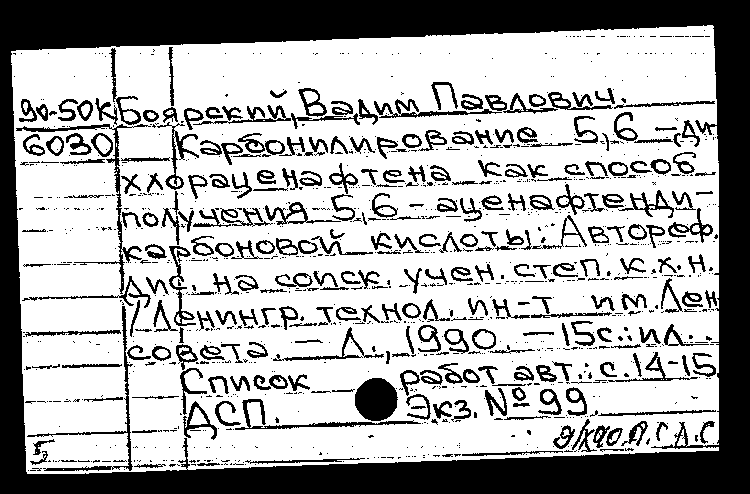 90-50К Боярский, Вадим Павлович.
6030 Карбонилирование 5,6-ди-
хлораценафтена как способ
получения 5,6-аценафтенди-
карбоновой кислоты: Автореф.
дис. на соиск. учен. степ. к.х.н.
/Ленингр. технол. ин-т им. Лен
совета. - Л., 1990. - 15с.: ил.
Список работ авт.: с.14-15.
ДСП. Экз. № 99.